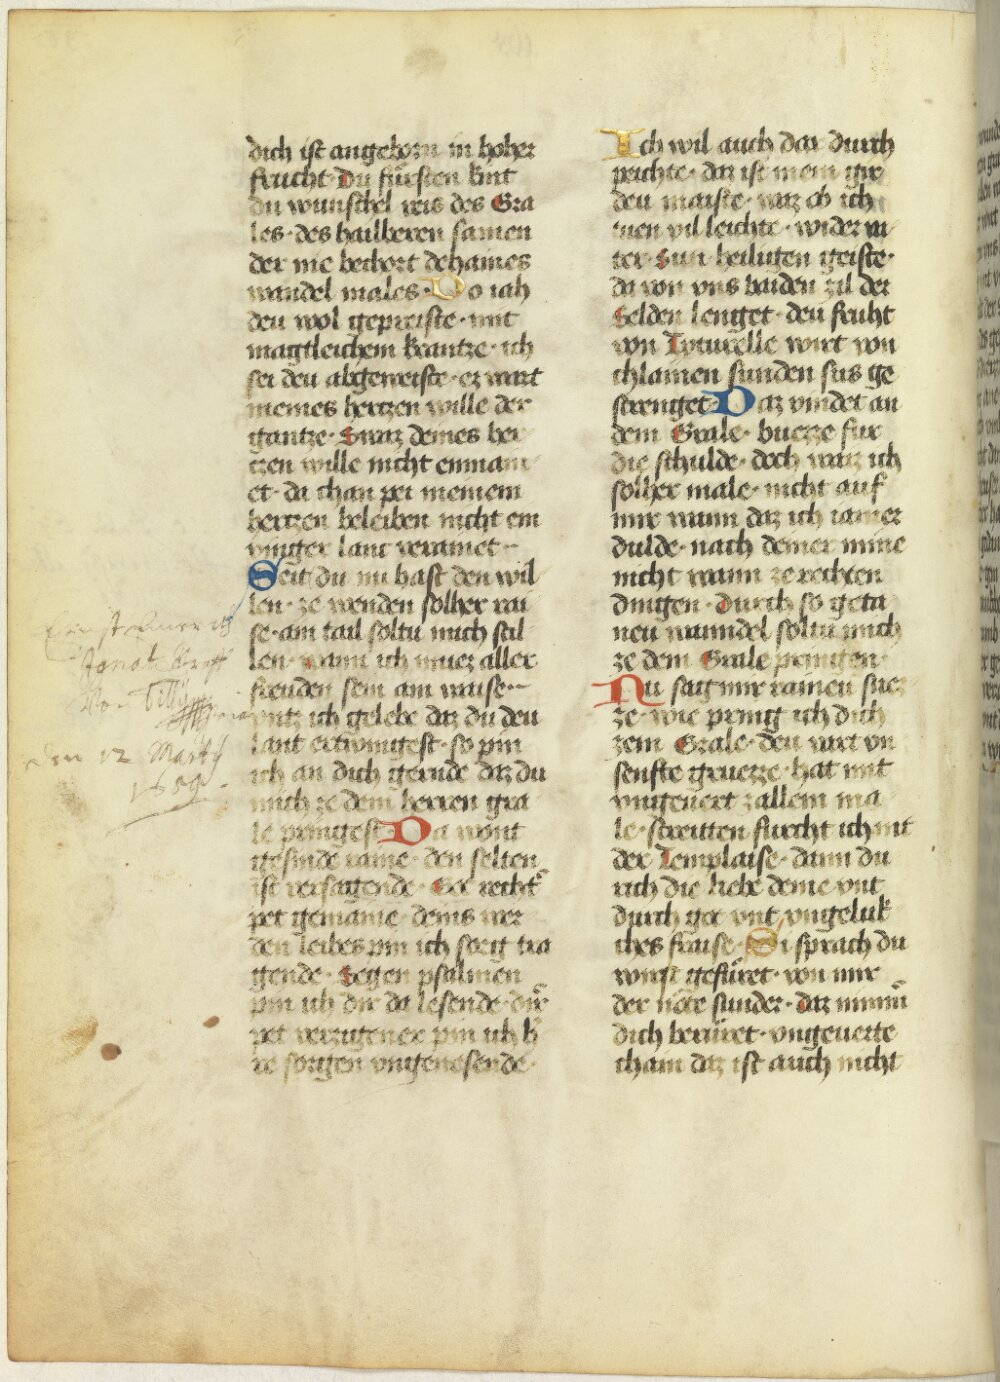 dich ist angeborn in hoher
frucht · Du fürsten kint
du wunschel reis des Gra
les · des hailberen samen
der nie bechort dehaines
wandel males · Do iah
deu wol gepreiste · mit
magtleichem krantze · ich
sei deu abgeweiste · ez wart
meines hertzen wille der
gantze · Swaz deines her
tzen wille nicht ennam
et · da chan pei meinem
hertzen beleiben nicht ein
vinger lanc veramet ·
Seit du nu hast den wil
len · ze wenden solher rai
se · am tail soltu mich stil
len · wann ich muez aller
freuden sein am waise ·
vntz ich gelebe daz du deu
lant ertwingest · so pin
ich an dich gernde daz du
mich ze dem herren gra
le pringest · Da wont
gesinde raine · den selten
ist versagende · Got recht
pet gemaine · deins wer
den leibes pin ich sorg tra
gende · Segen psalmen
pin ich dir da lesende · dir
pet verzugener pin ich h
re sorgen vngenesende ·
Ich wil auch dar durch
peichte · daz ist mein gir
deu maiste · waz ob ich
men vil leichte · wider va
ter · Sun heiligen geiste ·
da von vns baiden zil der
Selden lenget · deu fruht
von Tyturelle wirt von
chlainen sunden sus ge
strenget · Daz vindet an
dem Grale · buezze fur
die schulde · doch waiz ich
solher male · nicht auf
mir wann daz ich iamer
dulde · nach deiner mine
nicht wann ze rechten
dingen · durch so geta
neu wanndel soltu mich
ze dem Grale pringen ·
Nu sag mir raineu sue
ze · wie pring ich dich
zem Grale · deu vart vn
senfte gruezze · hat mit
vngeuert zallem ma
le · streitten furcht ich nit
der Templaise · dann du
rich die liebe deine vnt
durch got vnt vngeluk
ches fraise · Si sprach du
wirst gefüret · von mir
der nöte sunder · daz nimm
dich berüret · vngeuerte
chain daz ist auch nicht
den 12 Marty
1659